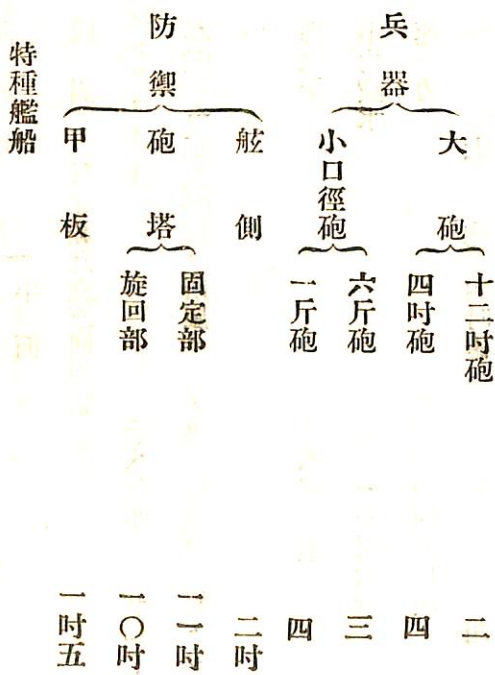 兵器
大砲
十二吋砲 二
四吋砲 四
小口徑砲
六斤砲 三
一斤砲 四
防禦
舷側 二吋
砲塔
固定部 一一吋
旋回部 一〇吋
甲板 一吋五
特種艦船